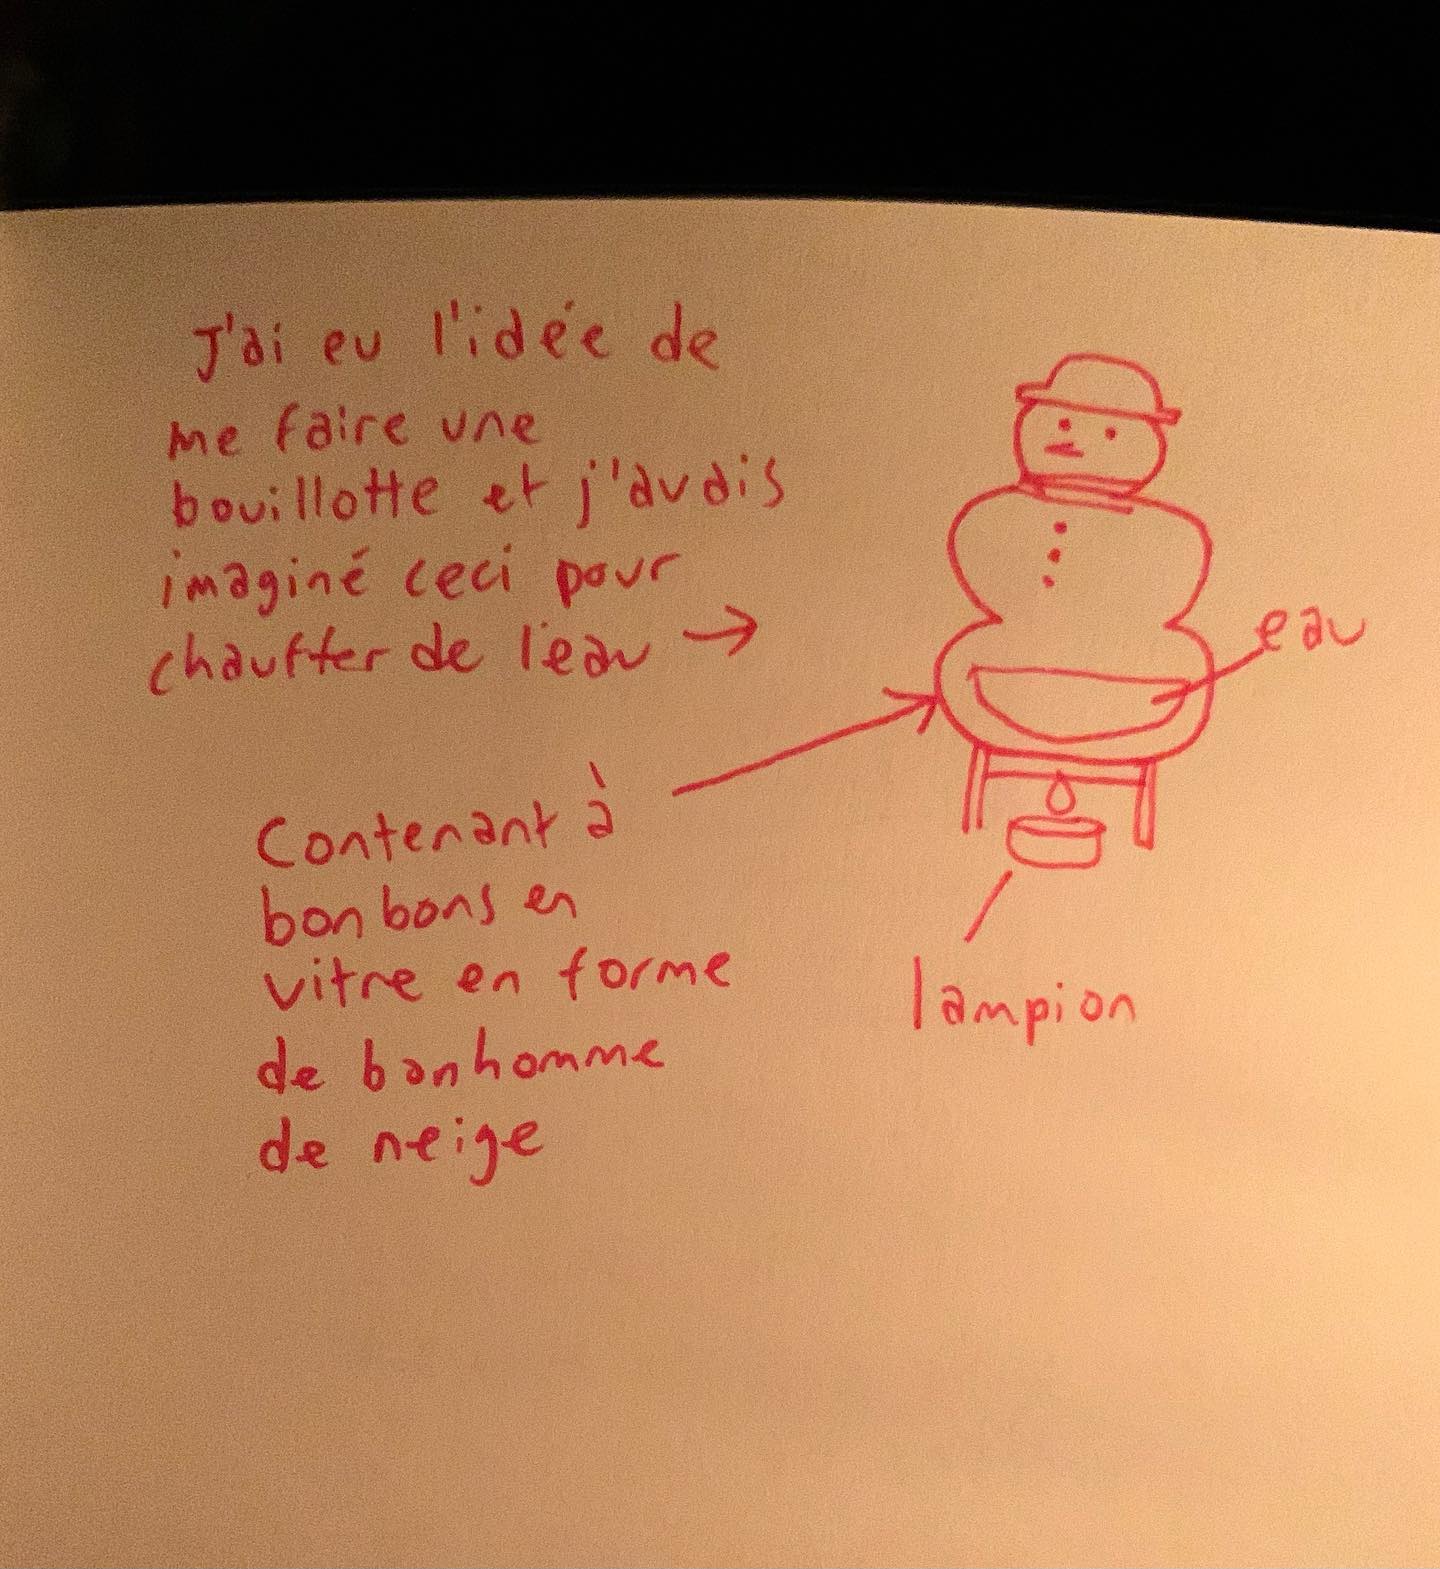 J'ai eu l'idée de
me faire une
bouillotte et j'avais
imaginé ceci pour
chauffer de l'eau →
eau
Contenant à
bonbons en
vitre en forme
de bonhomme
de neige
lampion